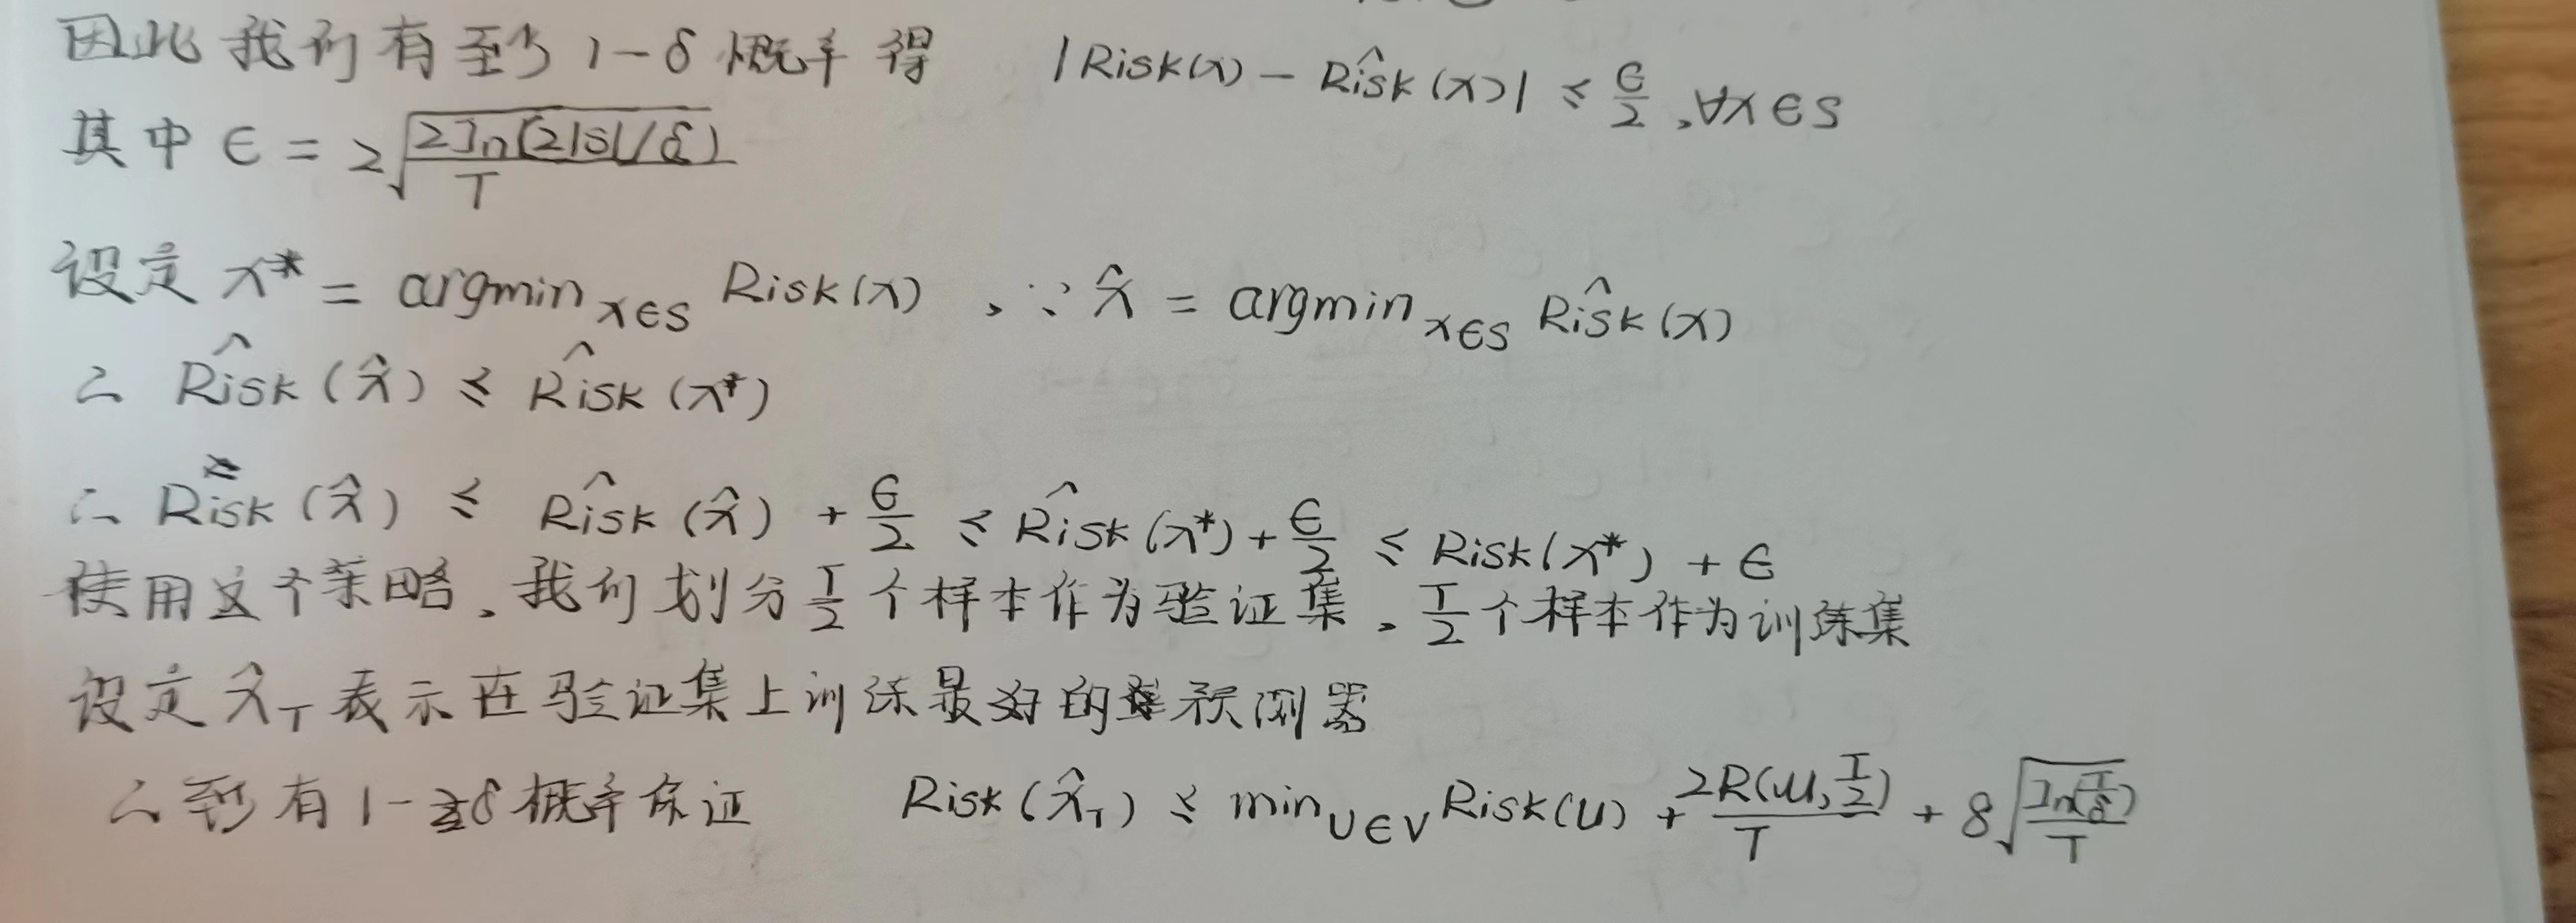 因此我们有至少 1-δ 概率得 |Risk(x) - Rîsk(x)| ≤ ϵ/2, ∀x∈S
其中 ϵ = 2√(2ln(2|S|/δ)/T)
设定 x* = argmin_{x∈S} Risk(x), ∵ x̂ = argmin_{x∈S} Rîsk(x)
∴ Rîsk(x̂) ≤ Rîsk(x*)
∴ Risk(x̂) ≤ Rîsk(x̂) + ϵ/2 ≤ Rîsk(x*) + ϵ/2 ≤ Risk(x*) + ϵ
使用这个策略, 我们划分 T/2 个样本作为验证集, T/2 个样本作为训练集
设定 x̂_T 表示在验证集上训练最好的预测器
∴ 至少有 1-δ 概率保证 Risk(x̂_T) ≤ min_{U∈V} Risk(U) + 2R(U, T/2)/T + 8√(ln(T/δ)/T)